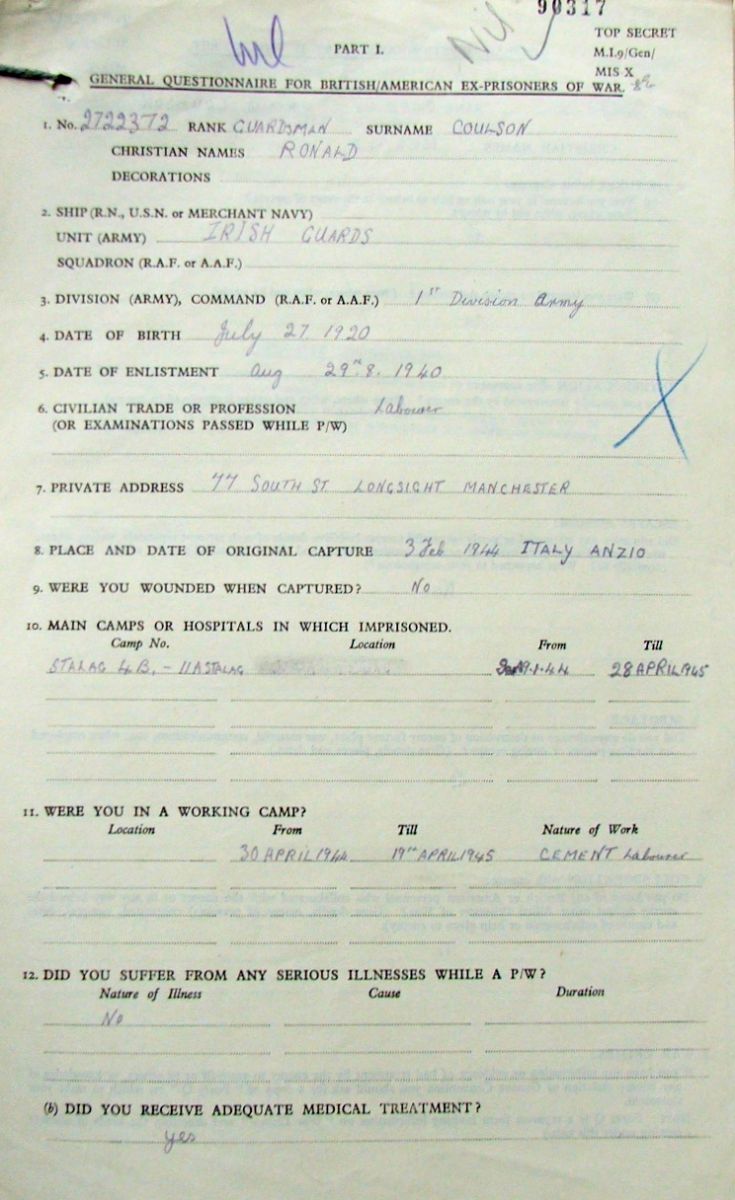 90317
nil
PART I.
Nil
TOP SECRET
M.I.9/Gen/
MIS X
GENERAL QUESTIONNAIRE FOR BRITISH/AMERICAN EX-PRISONERS OF WAR.
1. No. 2722372 RANK GUARDSMAN SURNAME COULSON
CHRISTIAN NAMES RONALD
DECORATIONS
2. SHIP (R.N., U.S.N. or MERCHANT NAVY)
UNIT (ARMY) IRISH GUARDS
SQUADRON (R.A.F. or A.A.F.)
3. DIVISION (ARMY), COMMAND (R.A.F. or A.A.F.) 1ST Division Army
4. DATE OF BIRTH July 27 1920
5. DATE OF ENLISTMENT Aug 29 8. 1940
6. CIVILIAN TRADE OR PROFESSION Labourer
(OR EXAMINATIONS PASSED WHILE P/W)
X
7. PRIVATE ADDRESS 77 SOUTH ST LONGSIGHT MANCHESTER
8. PLACE AND DATE OF ORIGINAL CAPTURE 3 Feb 1944 ITALY ANZIO
9. WERE YOU WOUNDED WHEN CAPTURED? No
10. MAIN CAMPS OR HOSPITALS IN WHICH IMPRISONED.
Camp No. Location From Till
STALAG 4B. - 11A STALAG 28 APRIL 1945
11. WERE YOU IN A WORKING CAMP?
Location From Till Nature of Work
30 APRIL 1944 19TH APRIL 1945 CEMENT Labourer
12. DID YOU SUFFER FROM ANY SERIOUS ILLNESSES WHILE A P/W?
Nature of Illness Cause Duration
No
(b) DID YOU RECEIVE ADEQUATE MEDICAL TREATMENT?
yes